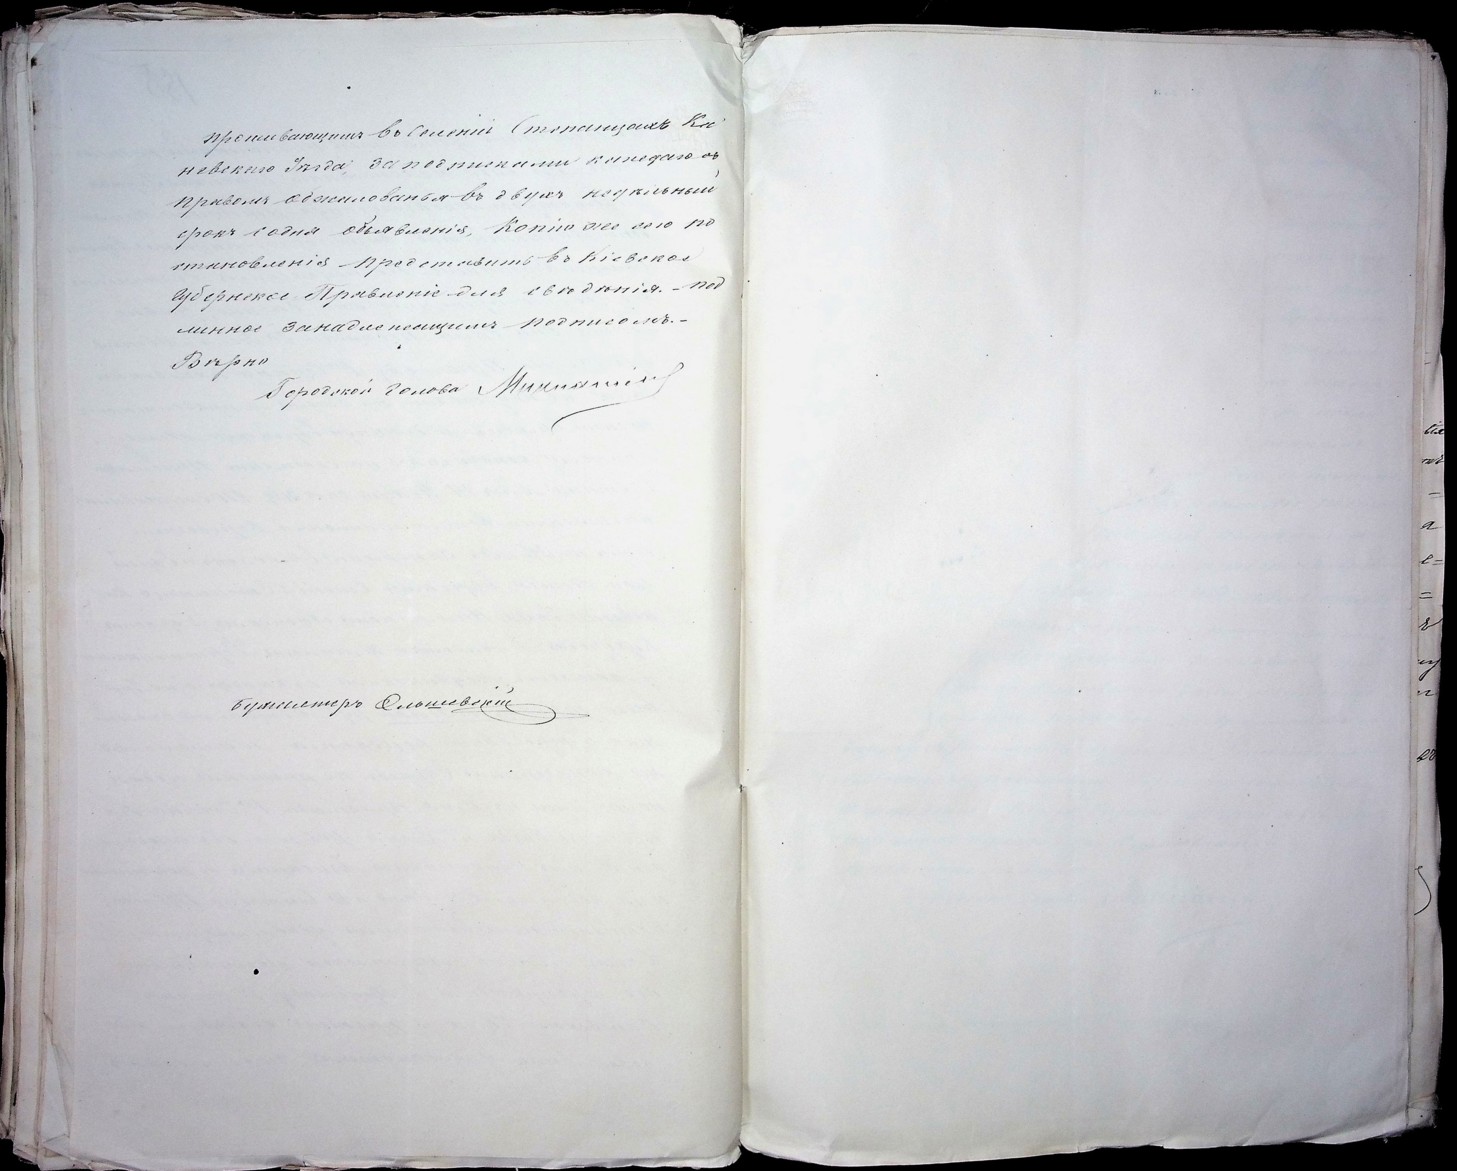 проживающимъ въ Селеніи Степанцахъ Ка
невскаго Уѣзда, за подписками каждаго съ
правомъ обжалованья въ двухъ недѣльный
срокъ содня объявленія, Копію же сего по
становленія представить въ Кіевское
Губернское Правленіе для свѣдѣнія. – Под
линное занадлежащимъ подписомъ. –
Вѣрно
Городской Голова
бухгалтеръ Ольшевскій